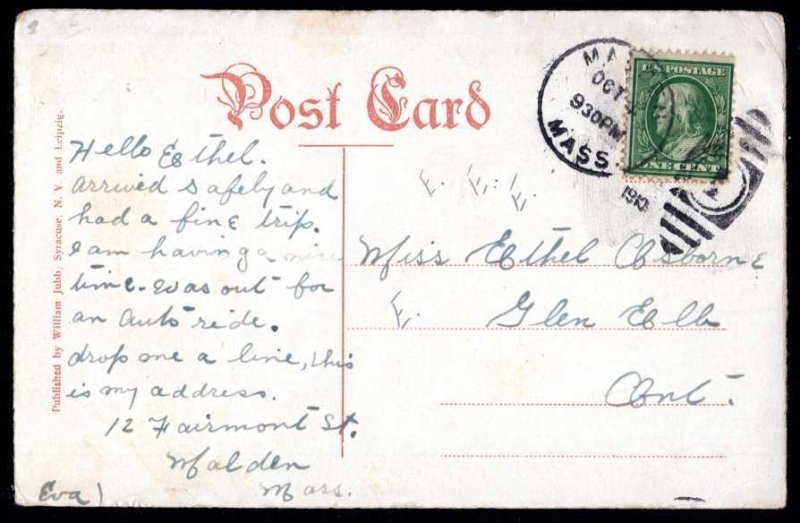 Post Card
Published by William Jubb, Syracuse, N. Y. and Leipzig.
Hello Ethel.
arrived safely and
had a fine trip.
I am having a nice
time. was out for
an auto ride.
drop me a line, this
is my address.
12 Fairmont St.
Malden
Mass.
Eva
MA
OCT
930PM
MASS.
1910
U.S. POSTAGE
ONE CENT
E. E. E
Miss Ethel Osborne
E.
Glen Ella
Ont.